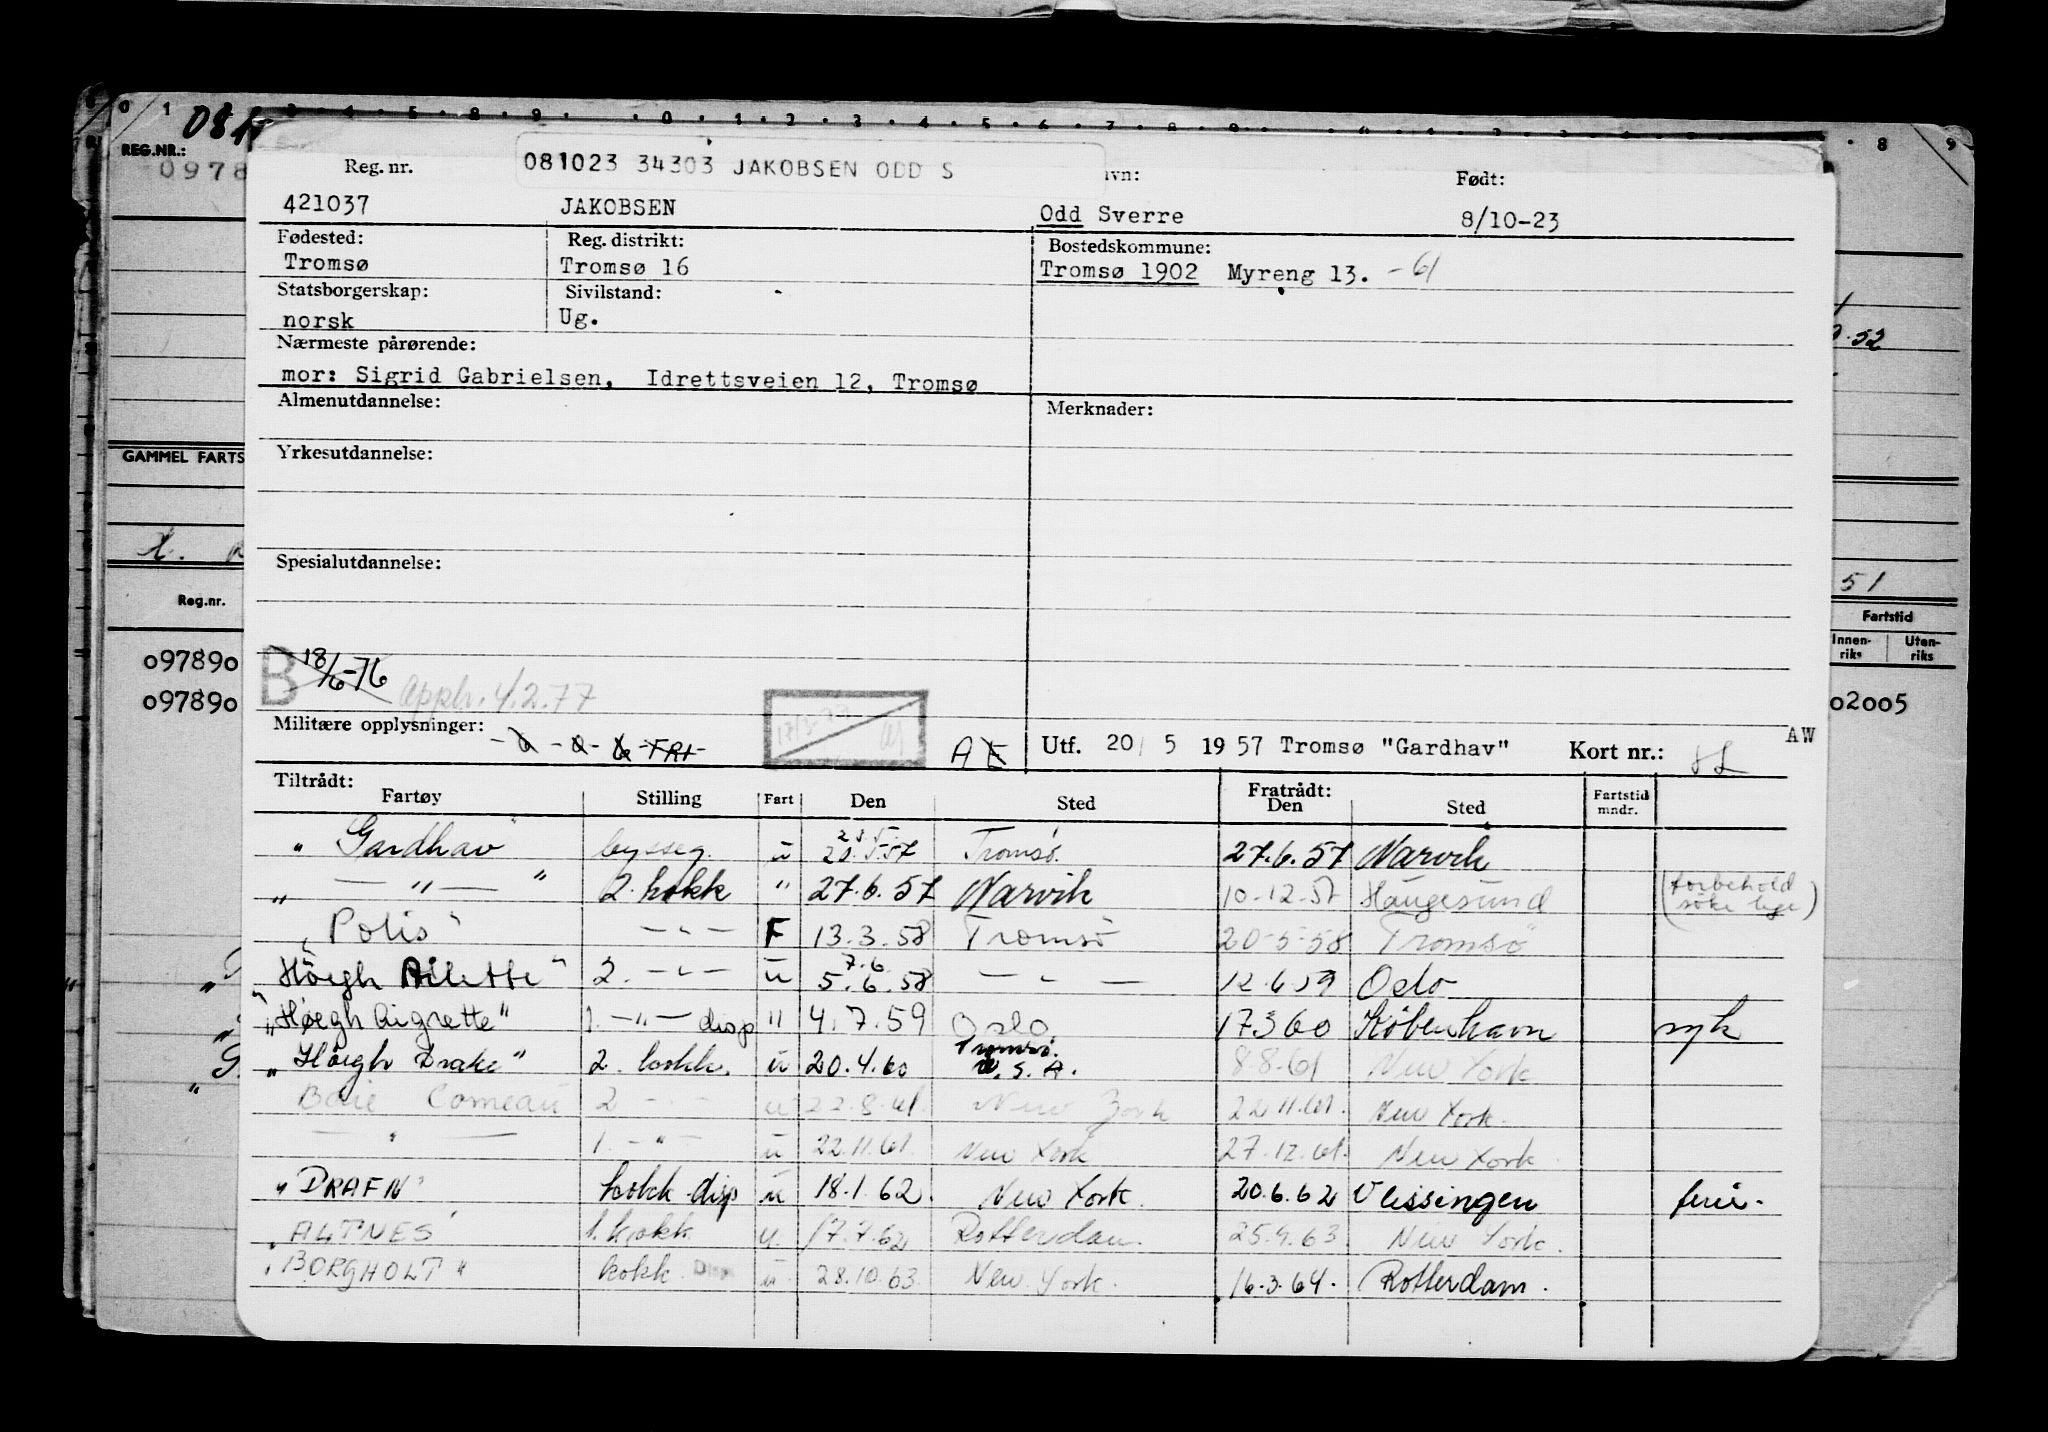 0 1 3 4 5 8 9 0 1 2 3 4 5 6 7 8 9 8 9
REG.NR.:
0978
Reg. nr. 081023 34303 JAKOBSEN ODD S vn: Født:
421037 JAKOBSEN Odd Sverre 8/10-23
Fødested: Reg. distrikt: Bostedskommune:
Tromsø Tromsø 16 Tromsø 1902 Myreng 13. -61
Statsborgerskap: Sivilstand:
norsk Ug.
Nærmeste pårørende:
mor: Sigrid Gabrielsen, Idrettsveien 12, Tromsø
Almenutdannelse: Merknader:
Yrkesutdannelse:
GAMMEL FARTS
Spesialutdannelse:
51
Reg.nr. Fartstid
Innen-riks Uten-riks
097890
097890 02005
B 18/6-76 4.2.77
Militære opplysninger: FRI A E Utf. 20/ 5 1957 Tromsø "Gardhav" Kort nr.: AW
Tiltrådt: Fratrådt:
Fartøy Stilling Fart Den Sted Den Sted Fartstid mndr.
"Gardhav" bysseg. u 20.5.57 Tromsø. 27.6.57 Narvik
" — " — " 2. kokk " 27.6.57 Narvik 10.12.57 Haugesund (forbehold søke lege)
"Polis" — " — F 13.3.58 Tromsø 20-5-58 Tromsø
Höegh Ailette" 2. — " — u 7.6. 5.6.58 — " — 12.6.59 Oslo
"Høegh Aigrette" 1. — " — disp " 4.7.59 Oslo 17 3 60 København syk
"Höegh Drake" 2. kokk. u 20.4.60 Tromsø. U.S.A. 8.8.61 New York
Baie Comeau 2 — " — u 22.8.61. New York 22.11.61. New York.
— " — 1. — " — u 22.11.61. New York 27.12.61. New York.
"DRAFN" kokk-disp u 18.1.62. New York. 20.6.62 Vlissingen ferie.
ALTNES 1. kokk u. 17.7.62 Rotterdam. 25.9.63 New York.
"BORGHOLT" kokk u. 28.10.63. New York. 16.3.64. Rotterdam.